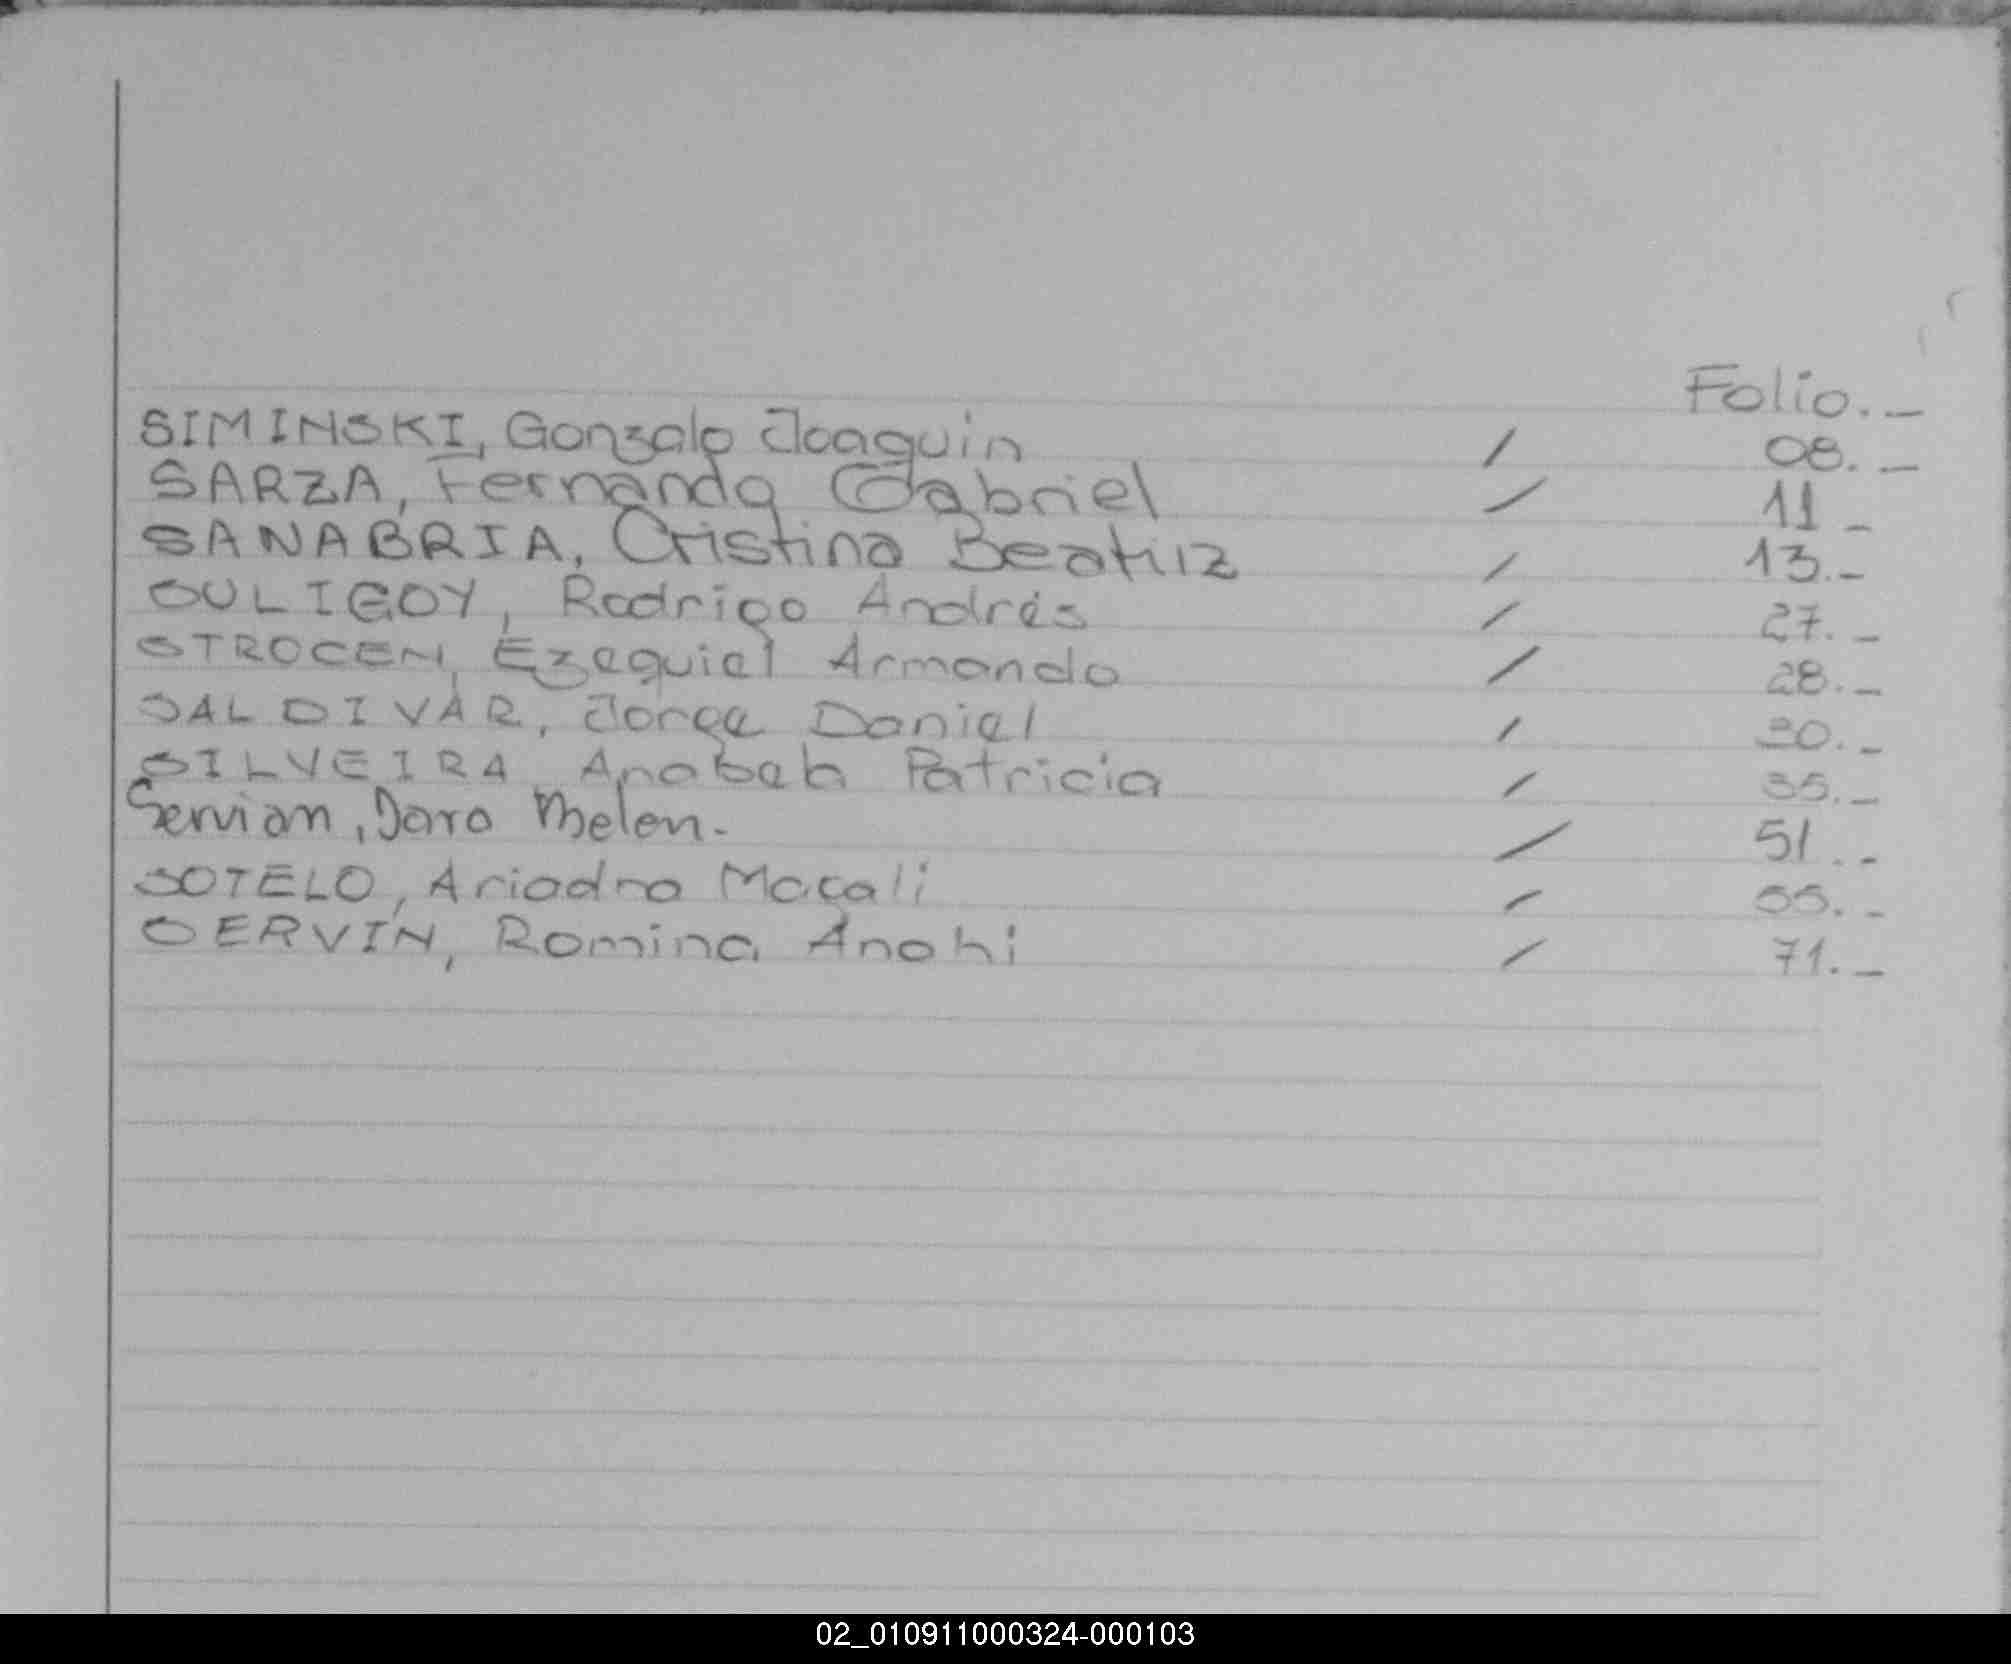 Folio._
SIMINSKI, Gonzalo Joaquin / 08._
SARZA, Fernando Gabriel / 11_
SANABRIA, Cristina Beatriz / 13._
SULIGOY, Rodrigo Andrés / 27._
STROCEN, Ezequiel Armando / 28._
SALDIVAR, Jorge Daniel / 30._
SILVEIRA Anabeh Patricia / 35._
Servian, Dara Melen. / 51..-
SOTELO, Ariadna Macali / 55.-
SERVIN, Romina Anahi / 71._
02_010911000324-000103